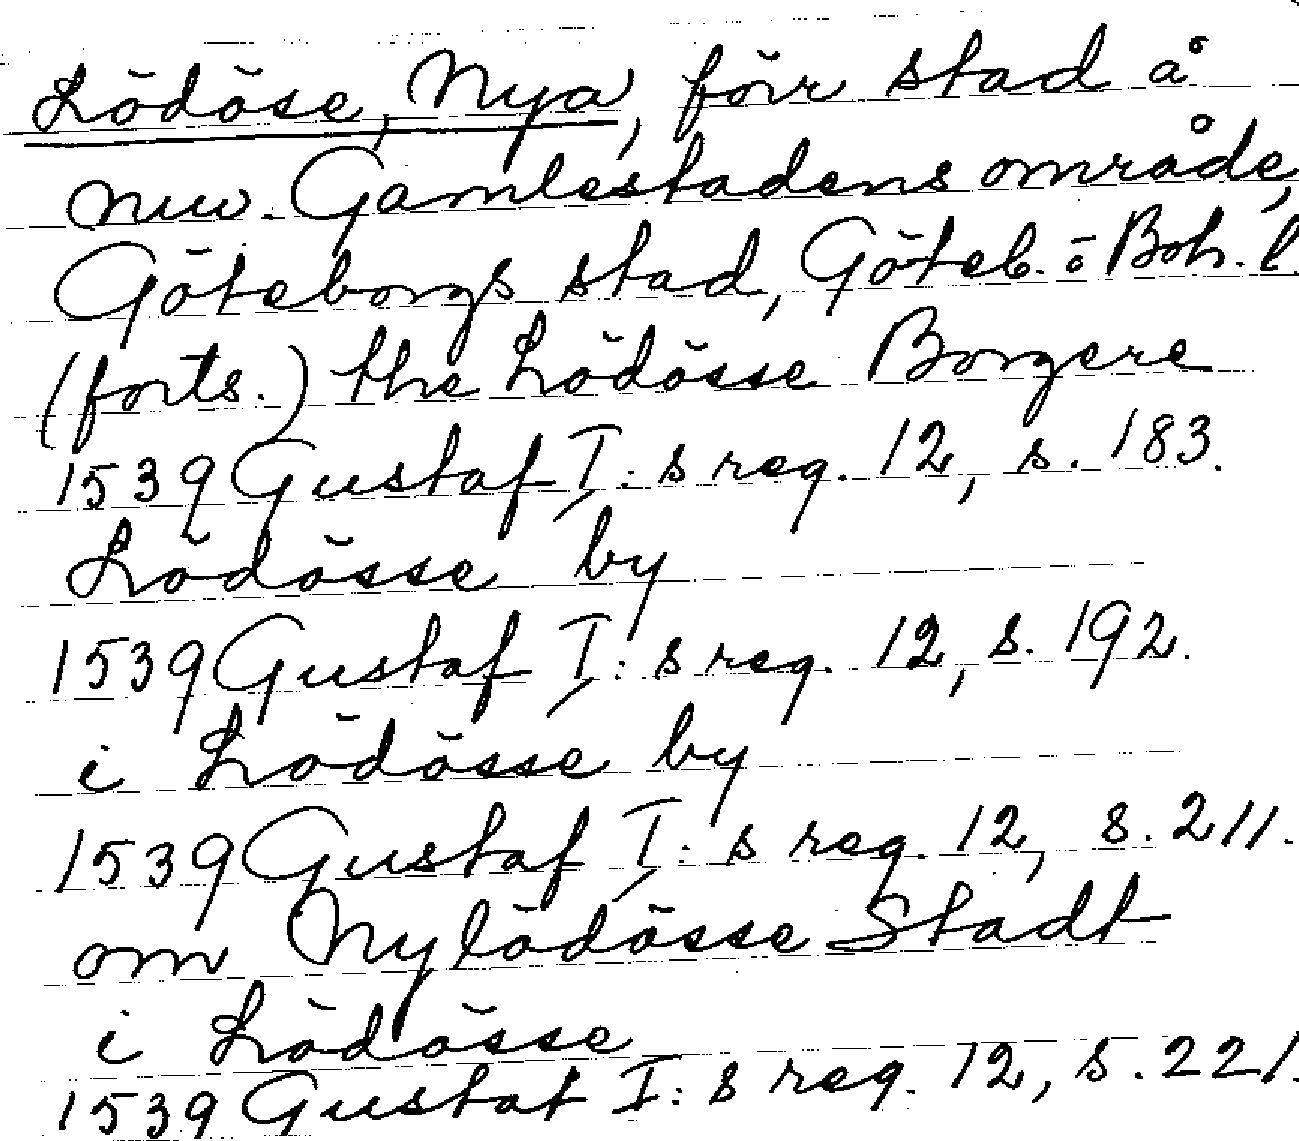 Lödöse, Nya, förr stad å
nuv. Gamlestadens område,
Göteborgs stad, Göteb. o Boh. l
(forts.) the Lödösse Borgere
1539 Gustaf I:s reg. 12, s. 183.
Lödösse by
1539 Gustaf I:s reg. 12, s. 192.
i Lödösse by
1539 Gustaf I:s reg. 12, s. 211.
om Nylödösse Stadt
i Lödösse
1539 Gustaf I:s reg. 12, s. 221.